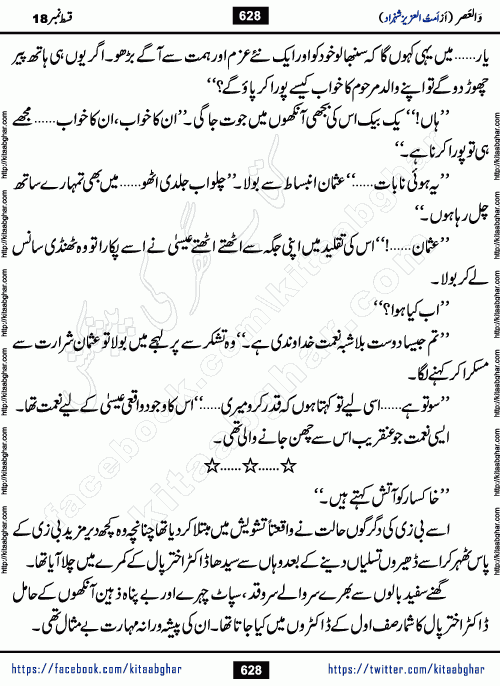 قسط نمبر 18 628 وَالعَصر (از اَمتُ العزیز شہزاد)
یار...... میں یہی کہوں گا کہ سنبھالو خود کو اور ایک نئے عزم اور ہمت سے آگے بڑھو۔ اگر یوں ہی ہاتھ پیر
چھوڑ دو گے تو اپنے والد مرحوم کا خواب کیسے پورا کر پاؤ گے؟‘‘
’’ہاں!‘‘ یک بیک اس کی بجھی آنکھوں میں جوت جاگی۔ ’’ان کا خواب، ان کا خواب...... مجھے
ہی تو پورا کرنا ہے۔‘‘
’’یہ ہوئی نا بات......‘‘ عثمان انبساط سے بولا۔ ’’چلو اب جلدی اٹھو...... میں بھی تمہارے ساتھ
چل رہا ہوں۔‘‘
’’عثمان......!‘‘ اس کی تقلید میں اپنی جگہ سے اٹھتے اٹھتے عیسیٰ نے اسے پکارا تو وہ ٹھنڈی سانس
لے کر بولا۔
’’اب کیا ہوا؟‘‘
’’تم جیسا دوست بلاشبہ نعمت خداوندی ہے۔‘‘ وہ تشکر سے پر لہجے میں بولا تو عثمان شرارت سے
مسکرا کر کہنے لگا۔
’’سو تو ہے...... اسی لیے تو کہتا ہوں کہ قدر کرو میری......‘‘ اس کا وجود واقعی عیسیٰ کے لیے نعمت تھا۔
ایسی نعمت جو عنقریب اس سے چھن جانے والی تھی۔
☆......☆......☆
’’خاکسار کو آتش کہتے ہیں۔‘‘
اسے بی زی کی دگرگوں حالت نے واقعتاً تشویش میں مبتلا کر دیا تھا چنانچہ وہ کچھ دیر مزید بی زی کے
پاس ٹھہر کر اسے ڈھیروں تسلیاں دینے کے بعد وہاں سے سیدھا ڈاکٹر اختر پال کے کمرے میں چلا آیا تھا۔
گھنے سفید بالوں سے بھرے سر والے سرو قد، سپاٹ چہرے اور بے پناہ ذہین آنکھوں کے حامل
ڈاکٹر اختر پال کا شمار صف اول کے ڈاکٹروں میں کیا جاتا تھا۔ ان کی پیشہ ورانہ مہارت بے مثال تھی۔
https://facebook.com/kitaabghar 628 https://twitter.com/kitaabghar
http://kitaabghar.com
کتاب گھر کی پیشکش
kitaabghar.com
facebook.com/kitaabghar